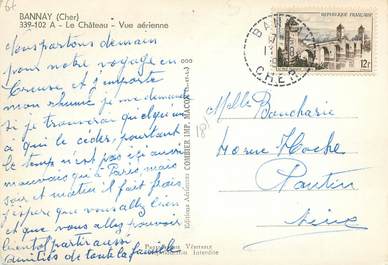 BANNAY (Cher)
339-102 A - Le Château - Vue aérienne
Nous partons demain
pour notre voyage en
Creuse et j'emporte
mon rhume je me demande
si je trouverai quelqu'un
à qui le céder, pourtant
le temps n'est pas ici aussi
mauvais qu'à Paris mais
soir et matin il fait frais
J'espère que vous allez bien
et que vous allez pouvoir
bientôt partir aussi
amitiés de toute la famille
Editions Aériennes COMBIER IMP. MACON
RÉPUBLIQUE FRANÇAISE
12F
BANNAY
CHER
Melle Boucharie
44 rue Hoche
Pantin
Seine
Reproduction Interdite